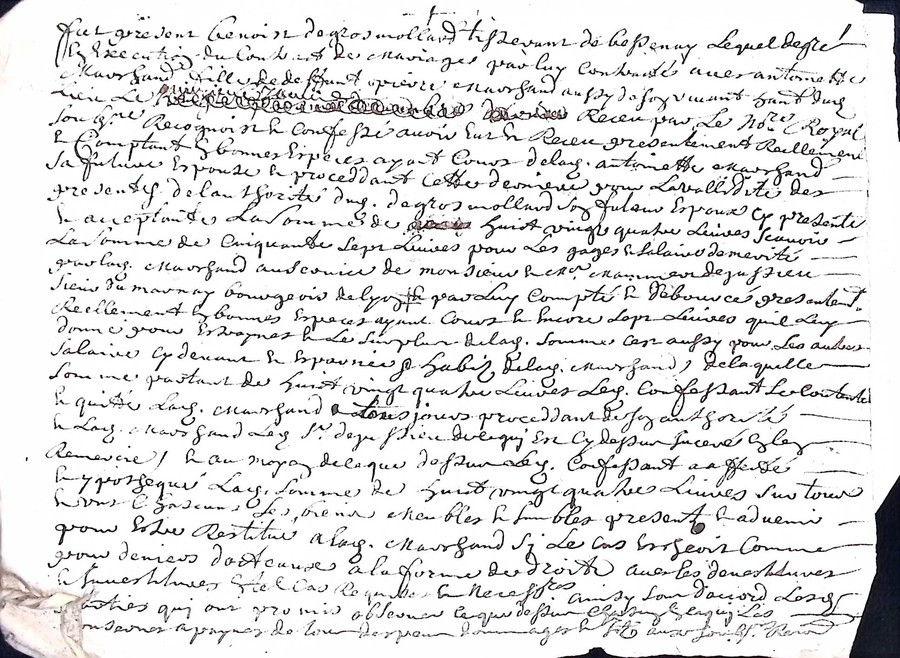 fut present benoist degrosmollard tisserant de bessenay Lequel de gré
En Execution du Contract de Mariage par luy Contracté avec antoinette
Marchand fille de deffunt pierre Marchand aussy de son vivant habt dud
Lieu Le Receu par Le Nore Royal
Soubsne Recognoist & Confesse avoir Eut & Receu presentement Reellement
& Comptant En bonnes Especes ayant Cours de lad. antoinette Marchand
Sa future Espouse & proceddant Cette derniere pour La vallidité des
presentes de lauthorité dud. degrosmollard son futur Espoux Cy present
& acceptante La Somme de huict vingt quatre Livres Scavoir
La Somme de Cinquante Sept Livres pour Les gages & Salaire de merité
par lad. Marchand au service de monsieur de jussieu
Sieur du bourgeois de lyon & par Luy Compté & debourcé presentemt
Reellement En bonnes Especes ayant Cours & Encore Sept Livres quil Luy
donne pour Estraynes & Le Surplus de lad. Somme Cest aussy pour Les autres
Salaire Cy devant & Espargne & habitz de lad. Marchand, de laquelle
Somme partant de huict vingt quatre Livres Led. Confessant Se Contente
& quitte Lad. Marchand a tousjours proceddant de son authorité
& Lad. Marchand Led. Sr. dejussieu de ce qui Est Cy dessus
Remercie, & au moyen de ce que dessus Led. Confessant a affecté
& ypothequé Lad. Somme de huict vingt quatre Livres Sur tous
& uns Chascuns Ses biens Meubles & Imubles present & advenir
pour Estre Restitué a lad. Marchand Si Le Cas Escheoit Comme
pour deniers dotteaux a la forme de droit avec les
& Esdit Cas Requises & Necessres ainsy Sont daccord Lesd.
parties qui ont promis observer ce que dessus
a payne de tous despens dommages &